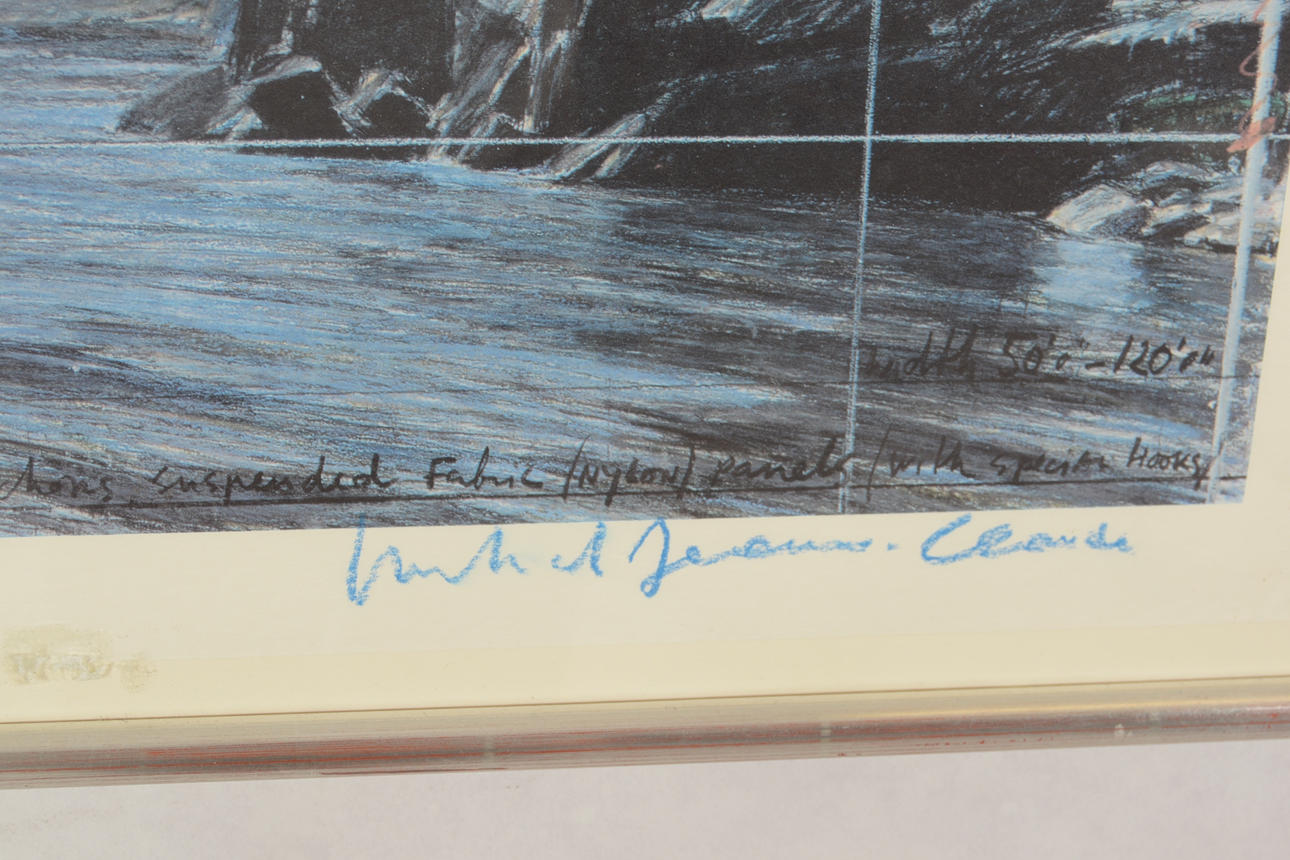 width 50'0"–120'0"
ctions, suspended Fabric (Nylon) panels (with special Hooks)
Christo and Jeanne-Claude